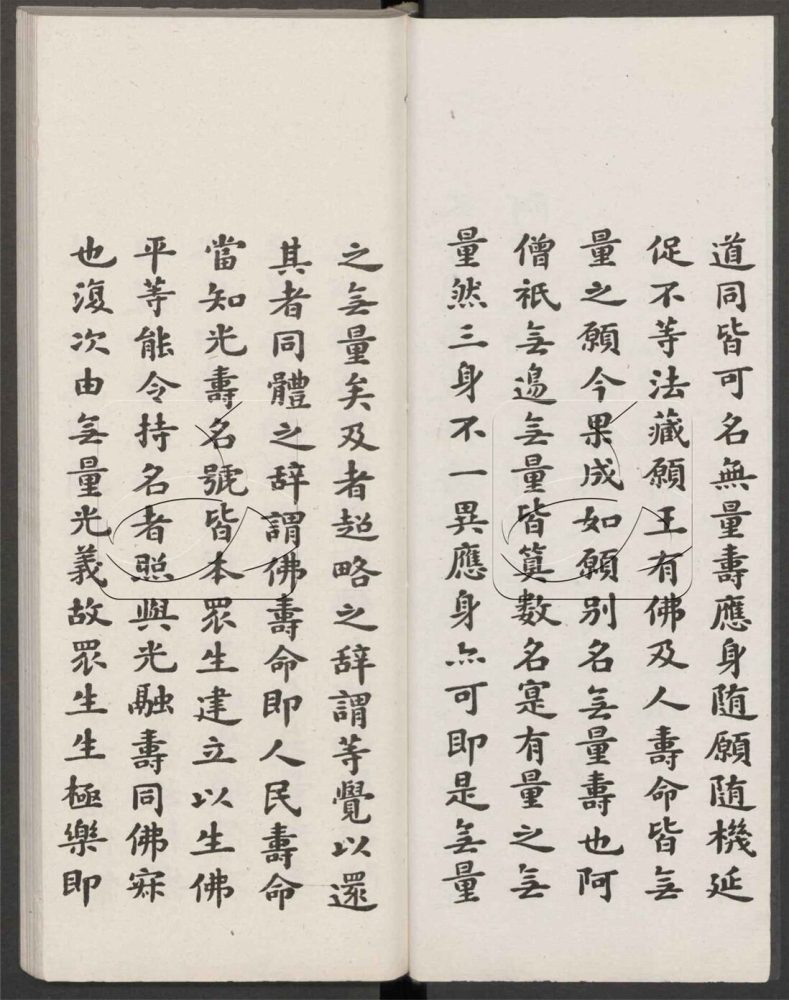 道同皆可名無量壽應身随願随機延
促不等法藏願王有佛及人壽命皆㒵
量之願今果成如願别名㒵量壽也阿
僧祇㒵邊㒵量皆筭數名寔有量之㒵
量然三身不一異應身亦可即是㒵量
之㒵量矣及者超略之辞謂等覺以還
其者同體之辞謂佛壽命即人民壽命
當知光壽名號皆本眾生建立以生佛
平等能令持名者照與光融壽同佛寐
也復次由㒵量光義故眾生生極樂即